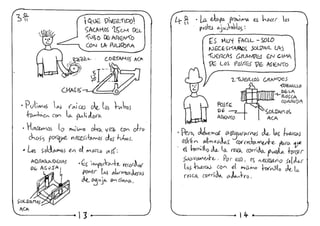 3ª
¡QUE DIVERTIDO!
SACAMOS 15cm DEL
TUBO DE ASIENTO
CON LA PULIDORA
CORTAMOS ACA
CHASIS
• Pulimos las raices de los tubos
tambien con la pulidora
• Hacemos lo mismo otra vez con otro
chasis porque necesitamos dos tubos.
• Los soldamos en el marco asi:
ABRAZADERAS
DE AGUJA
• Es importante recordar
poner las abrazaderas
de aguja encima.
SOLDAMOS
ACA
13
4ª
• La etapa proxima es hacer los
postes ajustables:
ES MUY FACIL - SOLO
NECESITAMOS SOLDAR LAS
TUERCAS GRANDES EN CIMA
DE LOS POSTES DE ASIENTO
2 TUERCAS GRANDES
TORNILLO
DE LA
ROSCA
CORRIDA
POSTE
DE
ASIENTO
SOLDAMOS
ACA
• Pero, debemos asegurarnos de las tuercas
estén alineadas correctamente para que
el tornillo de la rosca corrida pueda torcer
suavemente. Por eso, es necesario soldar
las tuercas con el mismo tornillo de la
rosca corrida adentro.
14